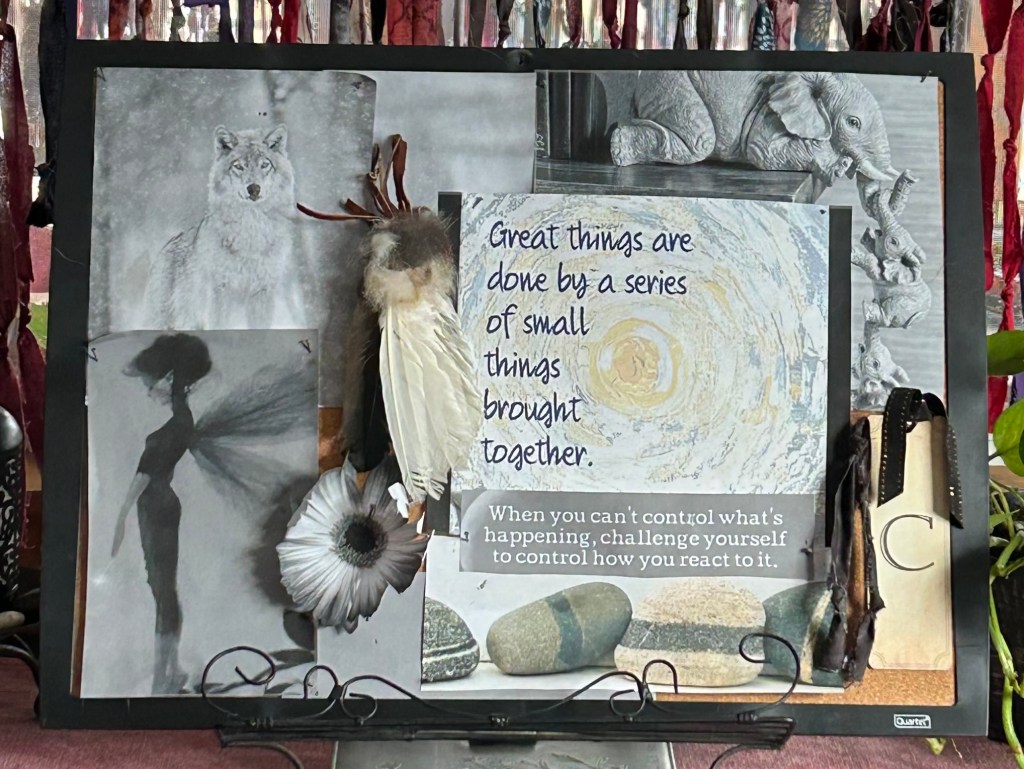 Great things are
done by a series
of small
things
brought
together.
When you can't control what's
happening, challenge yourself
to control how you react to it.
C
Quartet